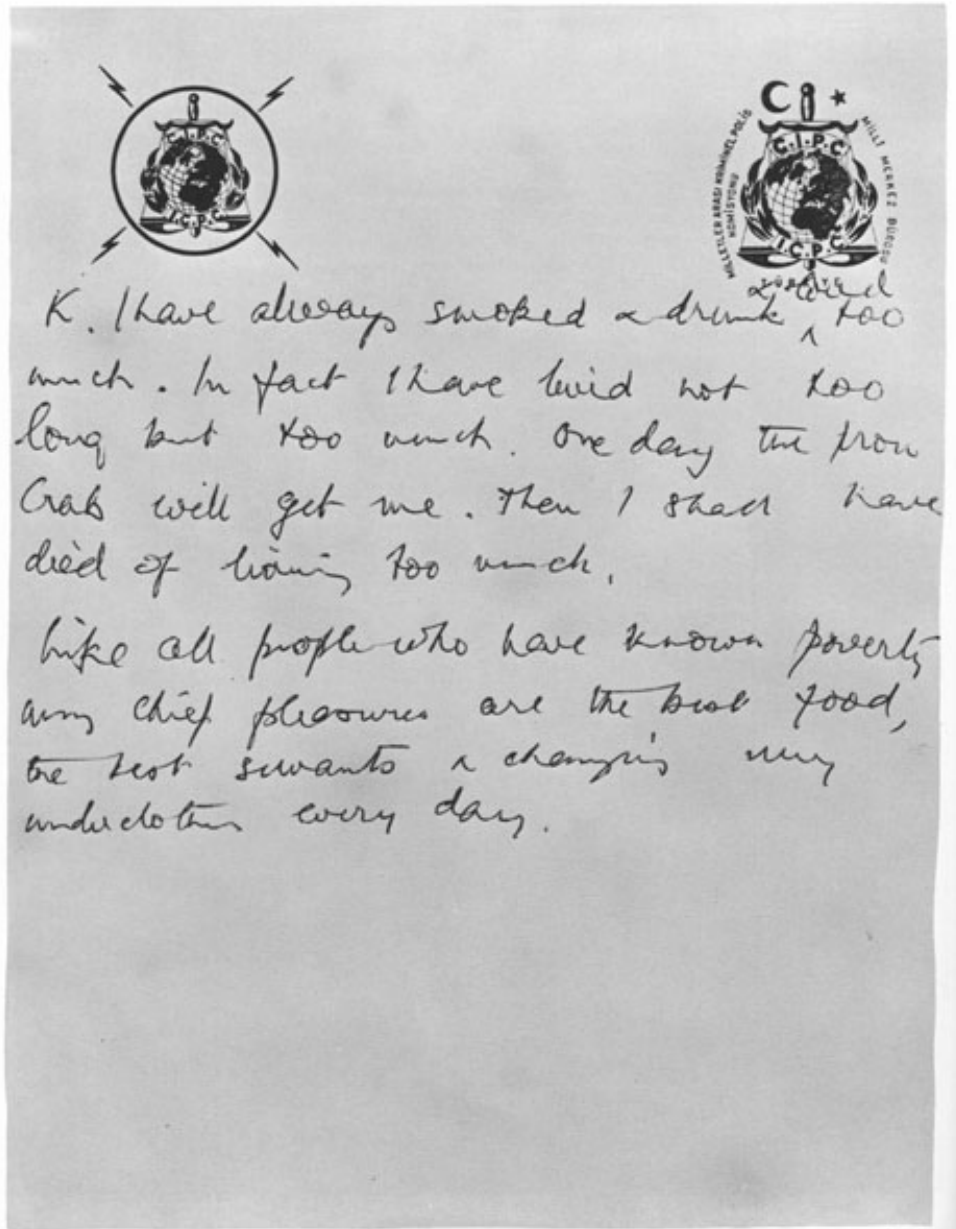 C.I.P.C
I.C.P.C
MILLETLER ARASI KRIMINEL POLIS
KOMISYONU
MILLI MERKEZ BÜROSU
C.I.P.C
I.C.P.C
& loved
K. I have always smoked & drunk ^ too
much. In fact I have lived not too
long but too much. One day the Iron
Crab will get me. Then I shall have
died of living too much.
Like all people who have known poverty
my chief pleasures are the best food,
the best servants & changing my
underclothes every day.